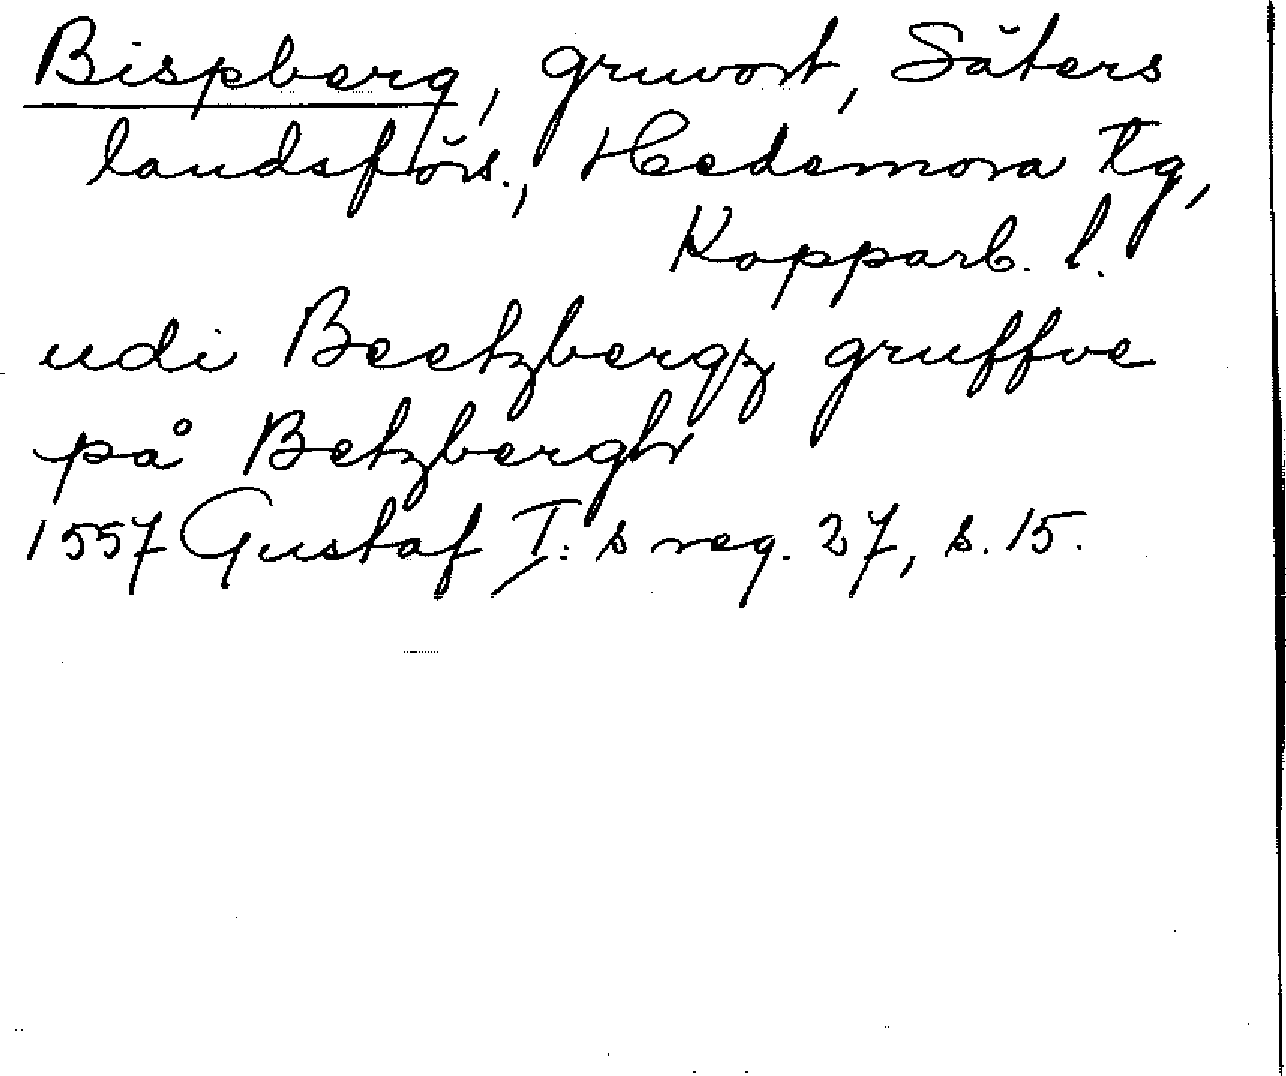 Bispberg, gruvort, Säters
landsförs., Hedemora tg,
Kopparb. l.
udi Beetzbergz gruffve
på Betzbergh
1557 Gustaf I:s reg. 27, s. 15.